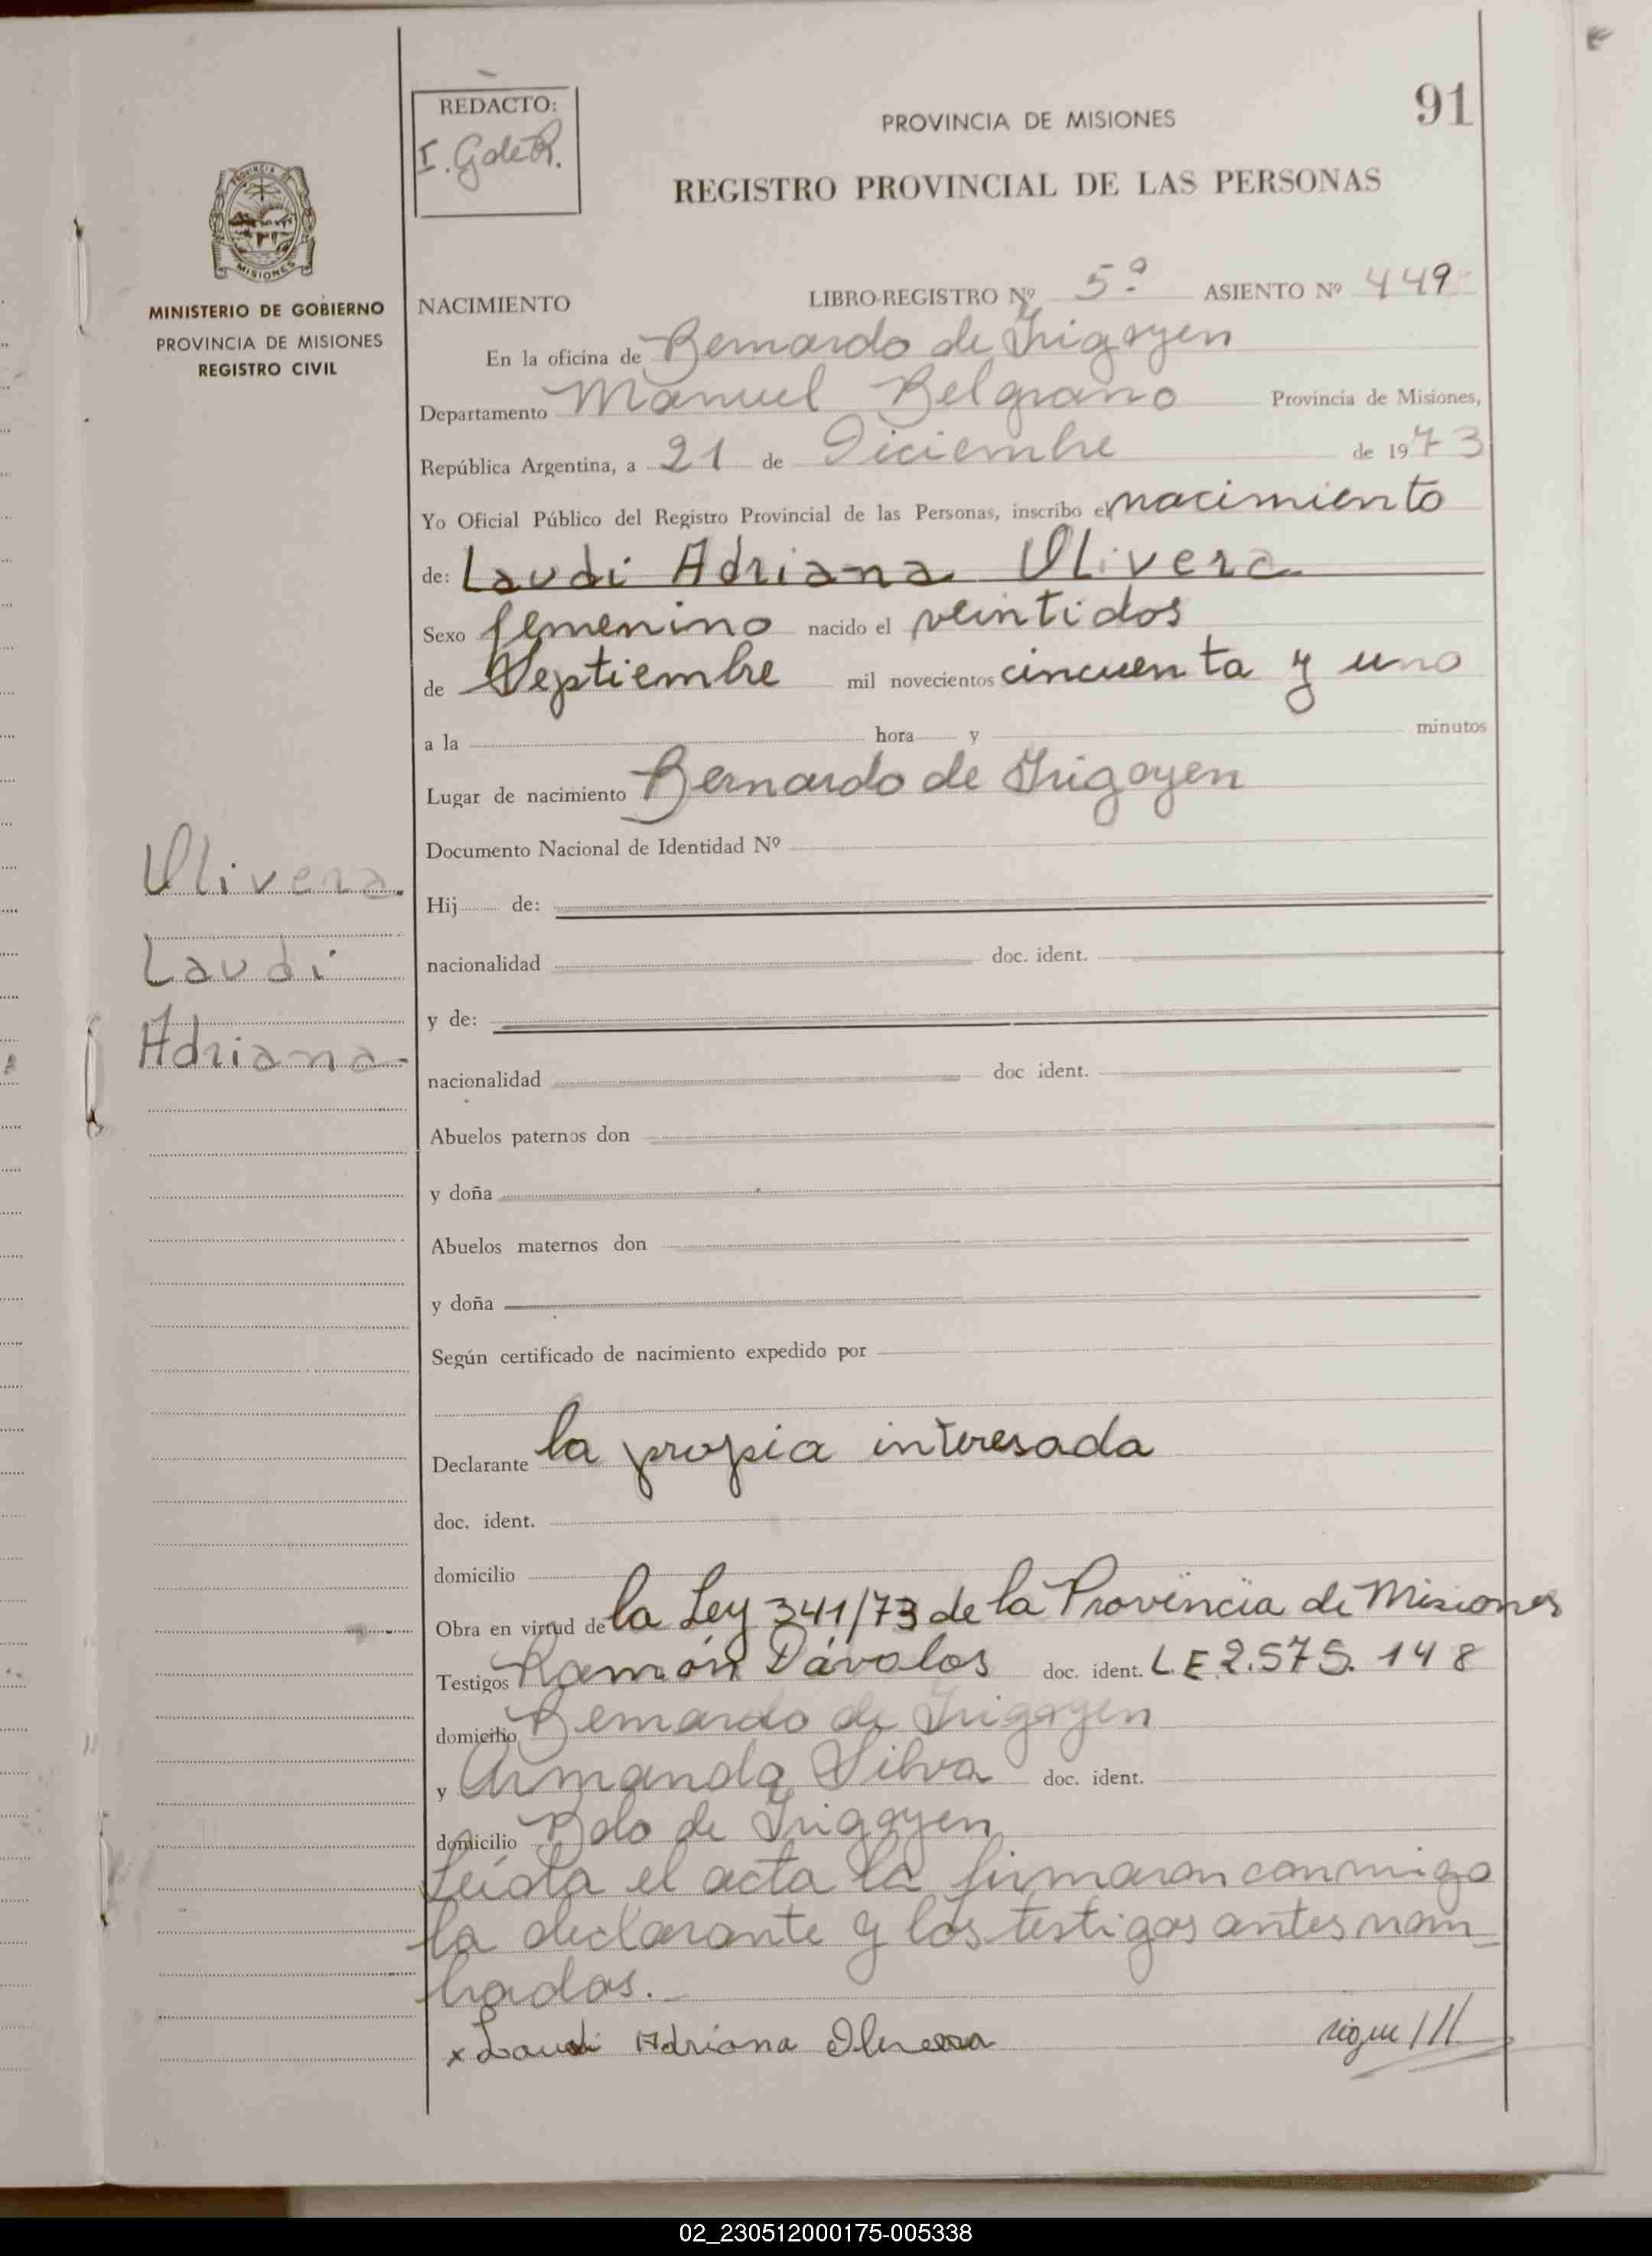 REDACTO:
I. G de R.
PROVINCIA DE MISIONES
91
REGISTRO PROVINCIAL DE LAS PERSONAS
PROVINCIA DE
MISIONES
MINISTERIO DE GOBIERNO
PROVINCIA DE MISIONES
REGISTRO CIVIL
NACIMIENTO LIBRO-REGISTRO Nº 5º ASIENTO Nº 449
En la oficina de Bernardo de Irigoyen
Departamento Manuel Belgrano Provincia de Misiones,
República Argentina, a 21 de Diciembre de 1973
Yo Oficial Público del Registro Provincial de las Personas, inscribo el nacimiento
de: Laudi Adriana Olivera
Sexo femenino nacido el veintidos
de Septiembre mil novecientos cincuenta y uno
a la hora y minutos
Lugar de nacimiento Bernardo de Irigoyen
Documento Nacional de Identidad Nº
Olivera
Hij de:
Laudi
nacionalidad doc. ident.
y de:
Adriana
nacionalidad doc ident.
Abuelos paternos don
y doña
Abuelos maternos don
y doña
Según certificado de nacimiento expedido por
Declarante la propia interesada
doc. ident.
domicilio
Obra en virtud de la Ley 341/73 de la Provincia de Misiones
Testigos Ramón Dávalos doc. ident. L.E 2.575.148
domicilio Bernardo de Irigoyen
y Armanda Silva doc. ident.
domicilio Bdo de Irigoyen
Leída el acta la firmaron conmigo
la declarante y los testigos antes nom
brados.
x Laudi Adriana Olivera sigue ///
02_230512000175-005338